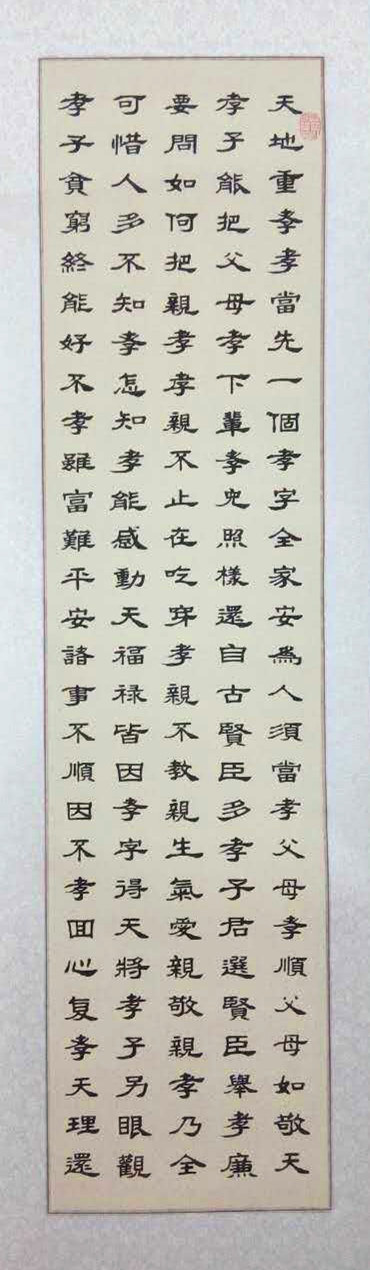 天地重孝孝當先一個孝字全家安為人須當孝父母孝順父母如敬天
孝子能把父母孝下輩孝兒照樣還自古賢臣多孝子君選賢臣舉孝廉
要問如何把親孝孝親不止在吃穿孝親不教親生氣愛親敬親孝乃全
可惜人多不知孝怎知孝能感動天福禄皆因孝字得天將孝子另眼觀
孝子貧窮終能好不孝雖富難平安諸事不順因不孝回心复孝天理還